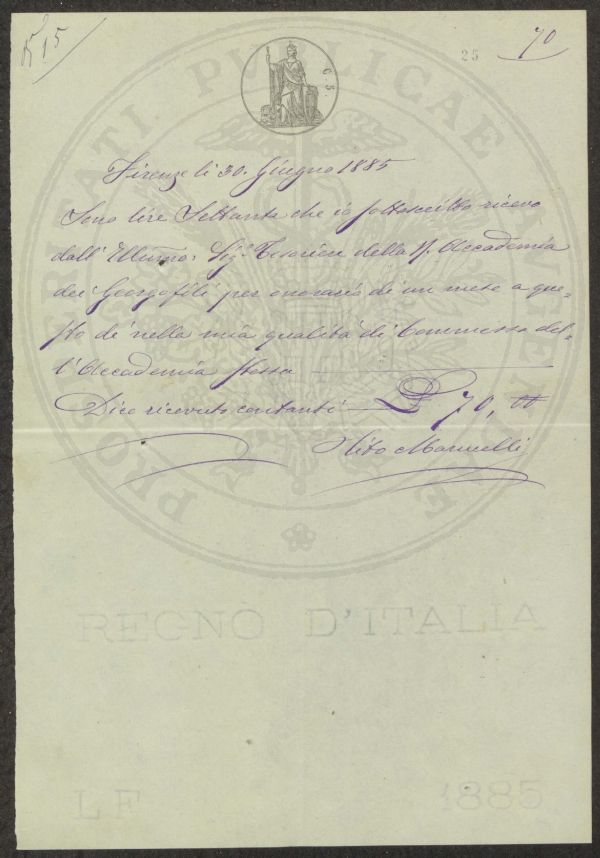 N° 15
25
70
C. 5.
PROSPERITATI PUBLICAE
Firenze li 30. Giugno 1885
Sono lire Settanta che io sottoscritto ricevo
dall' Illumo: Sigr. Tesoriere della R. Accademia
dei Georgofili per onorario di un mese a que=
sto dì nella mia qualità di Commesso del=
l' Accademia stessa
Dico ricevuto contanti £ 70, 00
Tito Marucelli
REGNO D'ITALIA
L F 1885